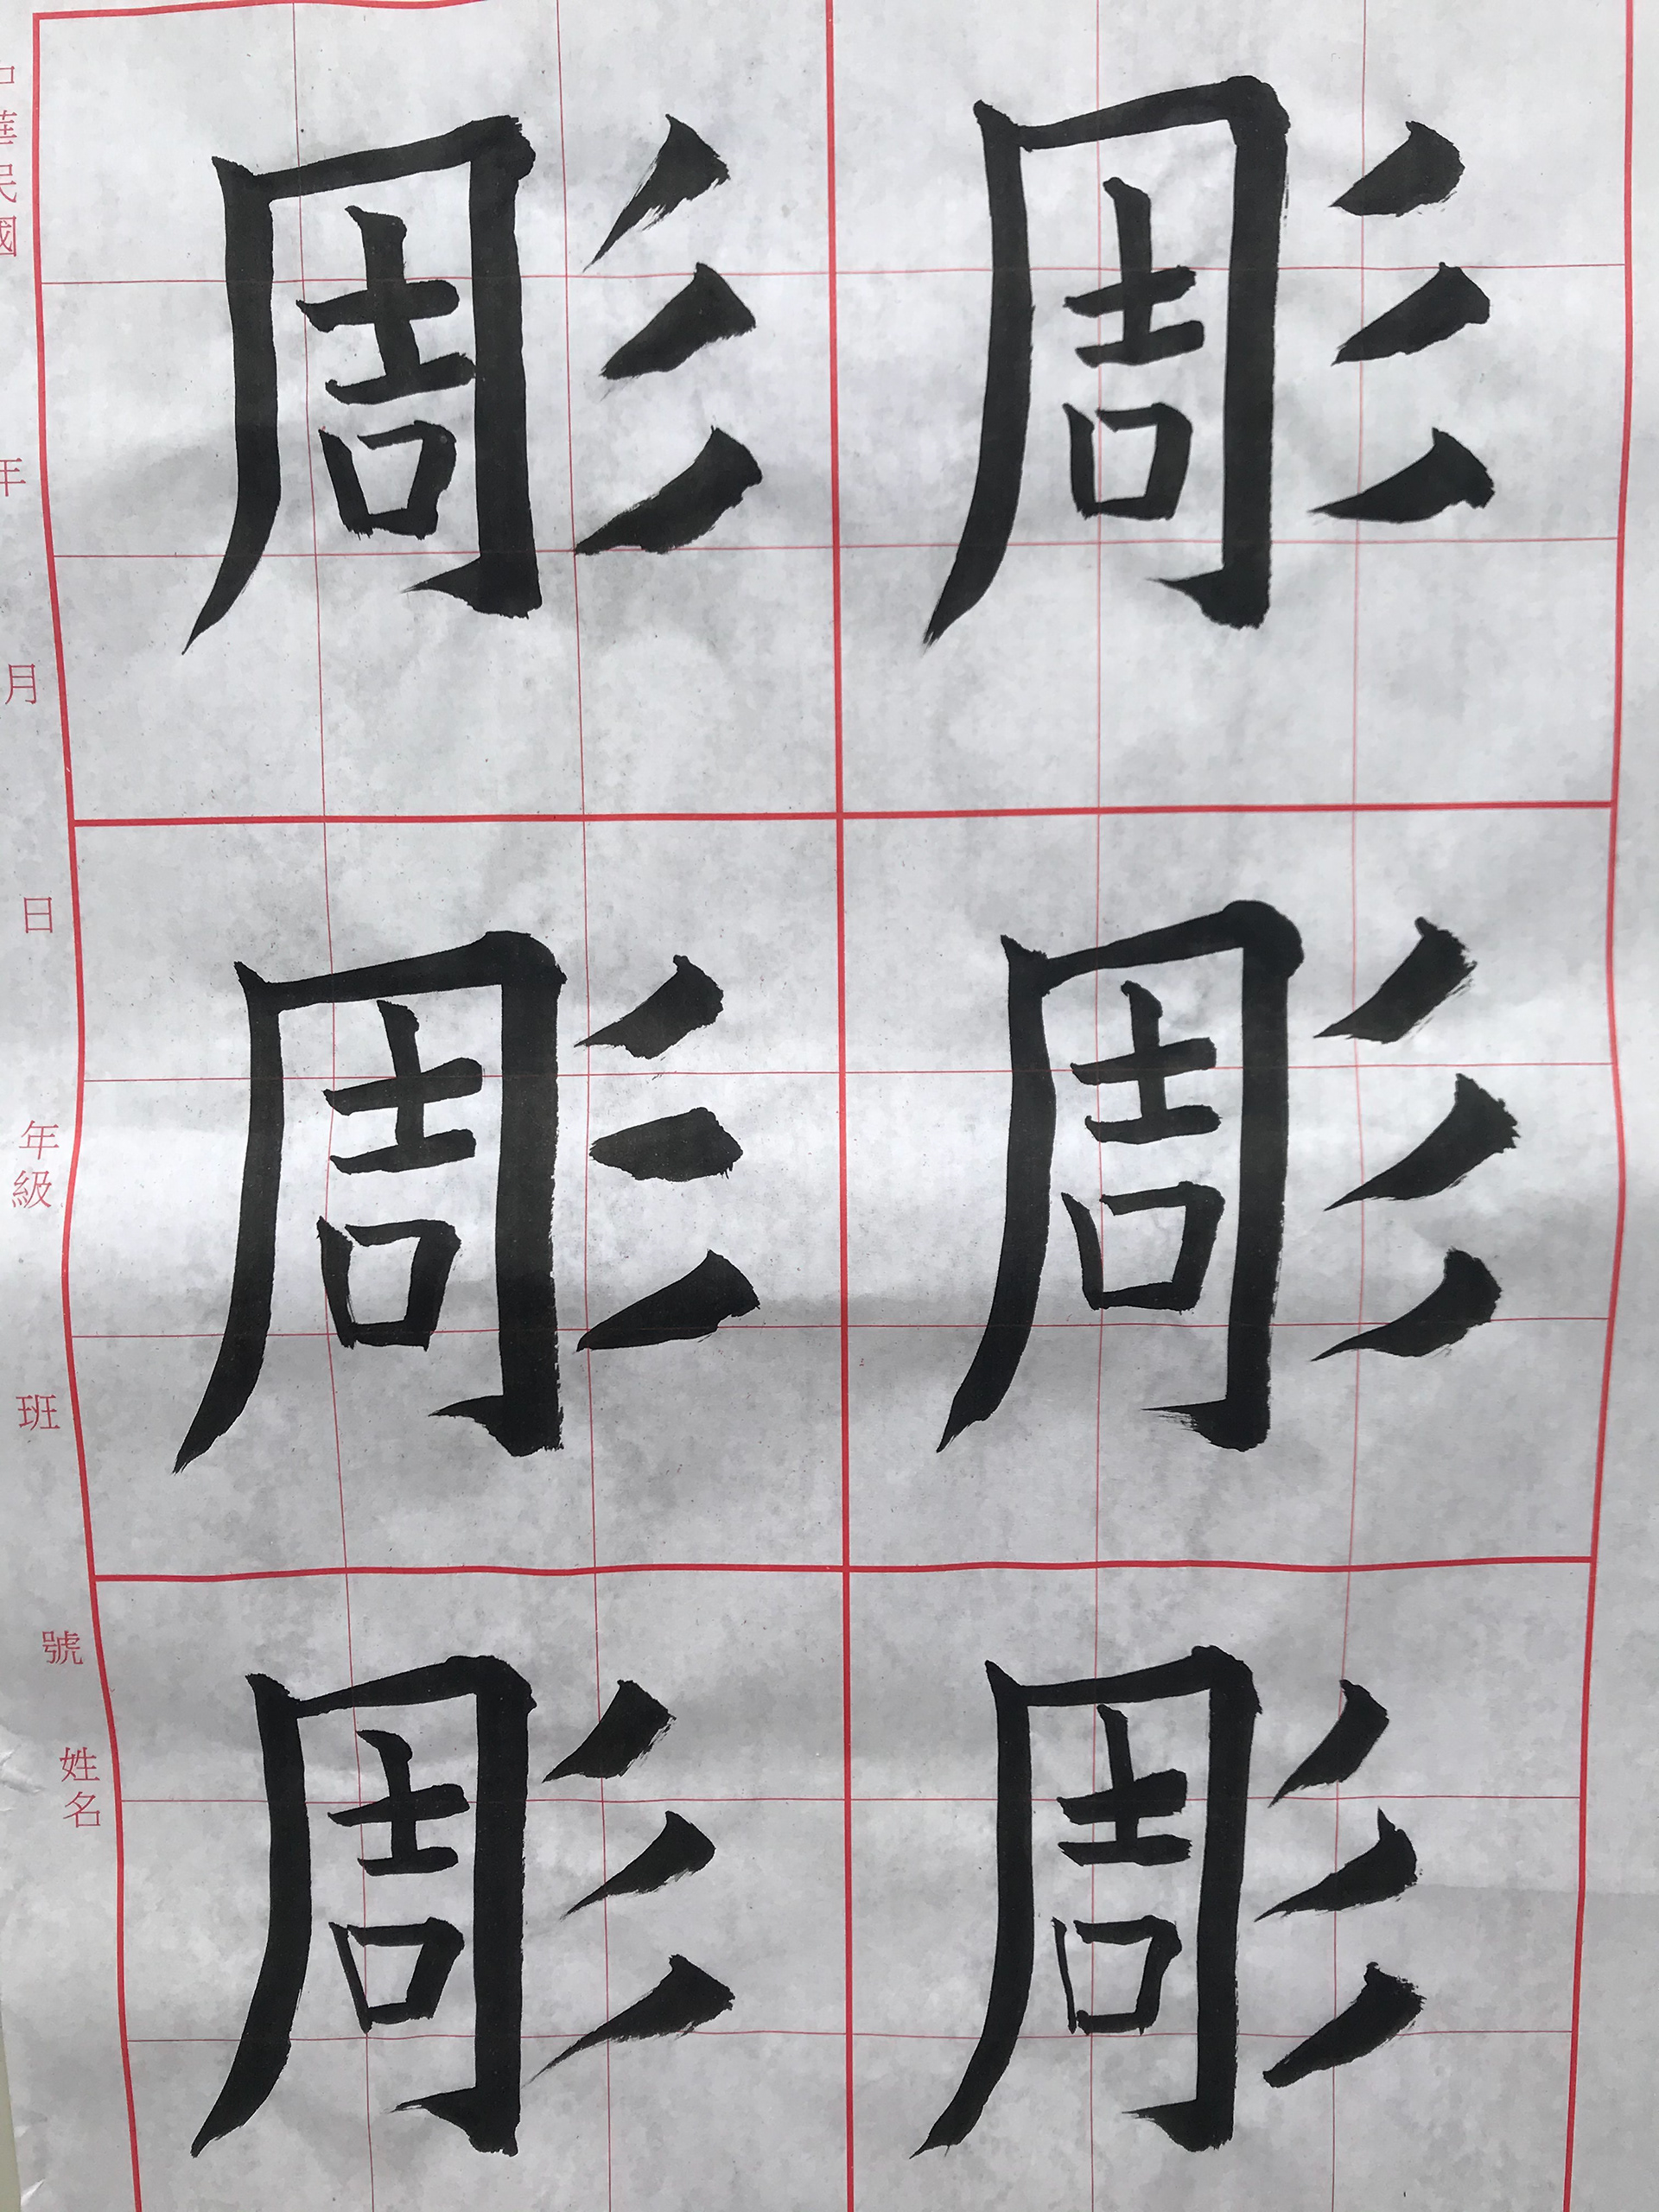 彫彫
彫彫
彫彫
中華民國 年 月 日 年級 班 號 姓名